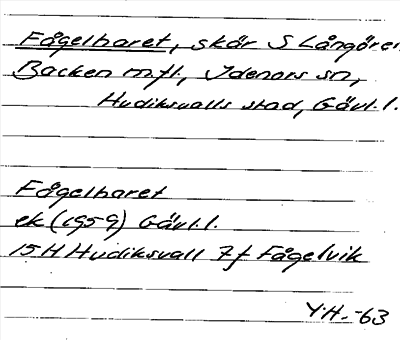 Fågelharet, skär S Långören
Backen mfl., Idenors sn,
Hudiksvalls stad, Gävl.l.
Fågelharet
ek (1959) Gävl.l.
15 H Hudiksvall 7f Fågelvik
Y.H.-63